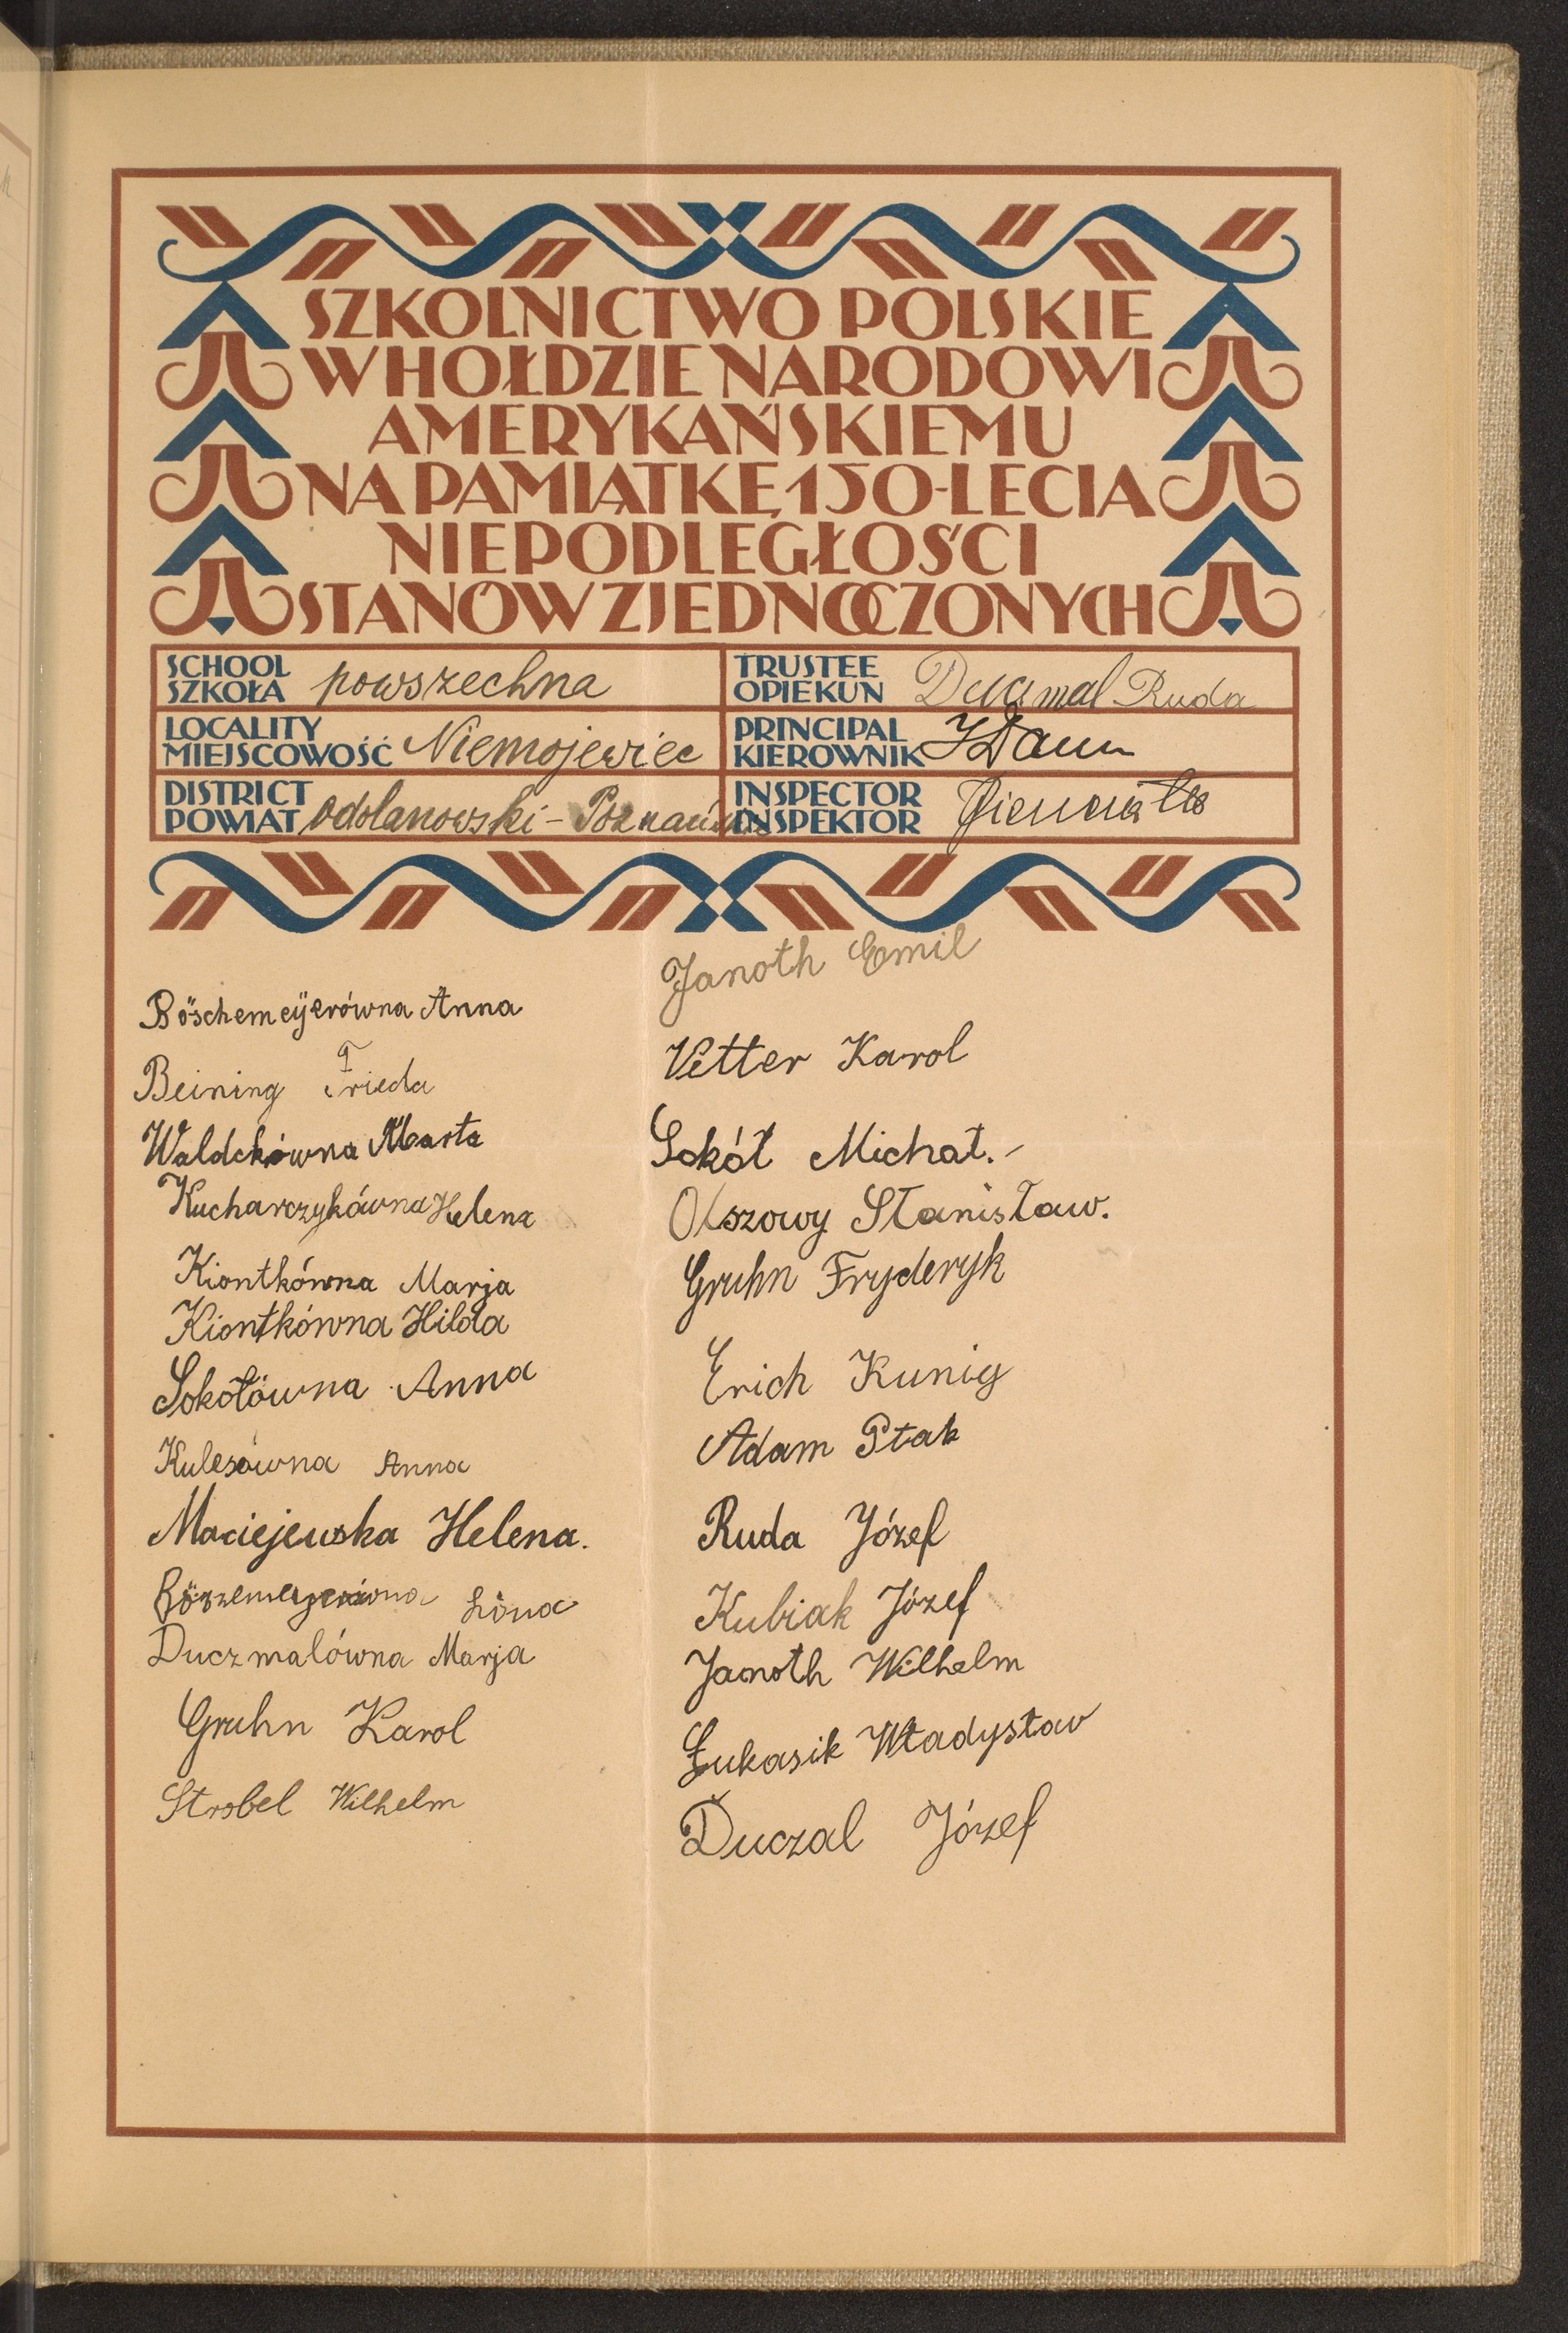 SZKOLNICTWO POLSKIE
W HOŁDZIE NARODOWI
AMERYKAŃSKIEMU
NA PAMIĄTKĘ 150-LECIA
NIEPODLEGŁOŚCI
STANÓW ZJEDNOCZONYCH
SCHOOL
SZKOŁA powszechna
TRUSTEE
OPIEKUN Ducimal Ruda
LOCALITY
MIEJSCOWOŚĆ Niemojewiec
PRINCIPAL
KIEROWNIK
DISTRICT
POWIAT odolanowski - Poznańskie
INSPECTOR
INSPEKTOR
Böschemeÿerówna Anna
Beining Frieda
Waldchówna Marta
Kucharczykówna Helena
Kiontkówna Marja
Kiontkówna Hilda
Sokółówna Anna
Kulesówna Anna
Maciejewska Helena.
Duczmalówna Marja
Gruhn Karol
Strobel Wilhelm
Janoth Emil
Vetter Karol
Sokół Michał.-
Olszowy Stanisław.
Gruhn Fryderyk
Erich Kunig
Adam Ptak
Ruda Józef
Kubiak Józef
Janoth Wilhelm
Łukasik Władysław
Duczal Józef